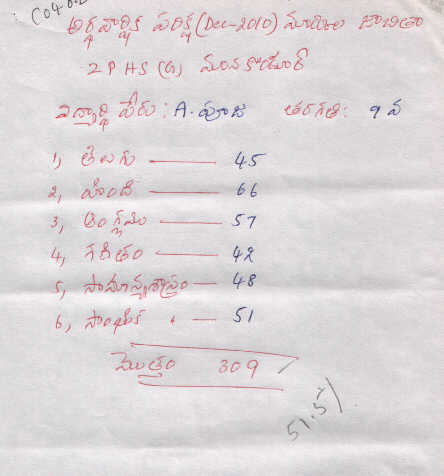 అర్థవార్షిక పరీక్ష (Dec-2010) మార్కుల జాబితా
ZPHS (G) మానకొండూర్
విద్యార్థి పేరు : A. పూజ తరగతి: 9 వ
1, తెలుగు —— 45
2, హిందీ —— 66
3, ఆంగ్లము —— 57
4, గణితం —— 42
5, సామాన్యశాస్త్రం — 48
6, సాంఘీక — 51
మొత్తం 309
51.5%